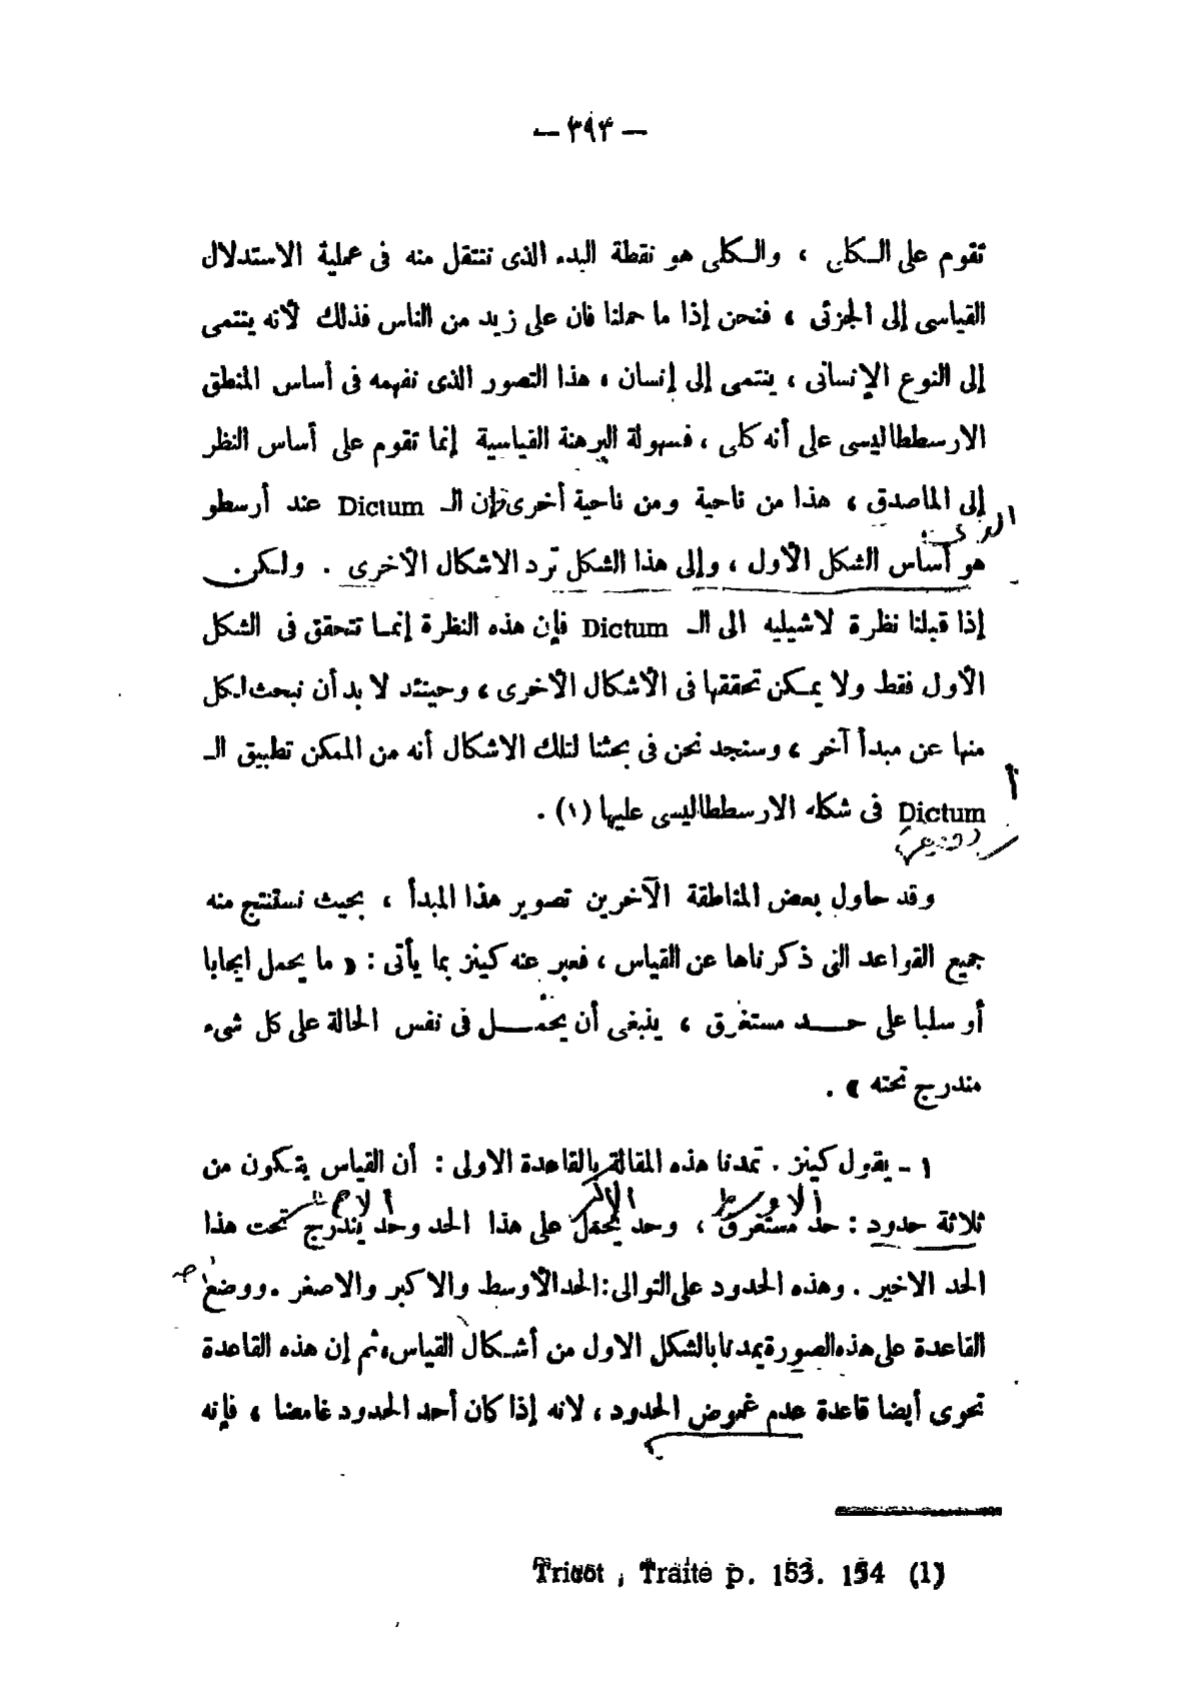 — ٣٩٣ —
تقوم على الكلى ، والكلى هو نقطة البدء الذى ننتقل منه فى عملية الاستدلال
القياسى إلى الجزئى ، فنحن إذا ما حملنا فان على زيد من الناس فذلك لأنه ينتمى
إلى النوع الإنسانى ، ينتمى إلى إنسان ، هذا التصور الذى نفهمه فى أساس المنطق
الارسططاليسى على أنه كلى ، فسهولة البرهنة القياسية إنما تقوم على أساس النظر
إلى الماصدق ، هذا من ناحية ومن ناحية أخرى فإن الـ Dictum عند أرسطو
هو أساس الشكل الأول ، وإلى هذا الشكل ترد الاشكال الأخرى . ولكن
إذا قبلنا نظرة لاشيليه الى الـ Dictum فإن هذه النظرة إنما تتحقق فى الشكل
الأول فقط ولا يمكن تحققها فى الأشكال الأخرى ، وحينئد لا بد أن نبحث لكل
منها عن مبدأ آخر ، وسنجد نحن فى بحثنا لتلك الاشكال أنه من الممكن تطبيق الـ
أ
Dictum فى شكله الارسططاليسى عليها (١) .
وقد حاول بعض المناطقة الآخرين تصوير هذا المبدأ ، بحيث نستنتج منه
جميع القواعد التى ذكرناها عن القياس ، فعبر عنه كينز بما يأتى : « ما يحمل ايجابا
أو سلبا على حـــد مستغرق ، ينبغى أن يحمـــل فى نفس الحالة على كل شىء
مندرج تحته » .
١ – يقول كينز . تمدنا هذه المقالة بالقاعدة الاولى : أن القياس يتكون من
الاوسط الاكبر الاصغر
ثلاثة حدود : حد مستغرق ، وحد يحمل على هذا الحد وحد يندرج تحت هذا
الحد الاخير . وهذه الحدود على التوالى : الحد الأوسط والاكبر والاصغر . ووضع
القاعدة على هذه الصورة يمدنا بالشكل الاول من أشكال القياس ، ثم إن هذه القاعدة
تحوى أيضا قاعدة عدم غموض الحدود ، لانه إذا كان أحد الحدود غامضا ، فإنه
Tricot , Traité p. 153. 154 (1)